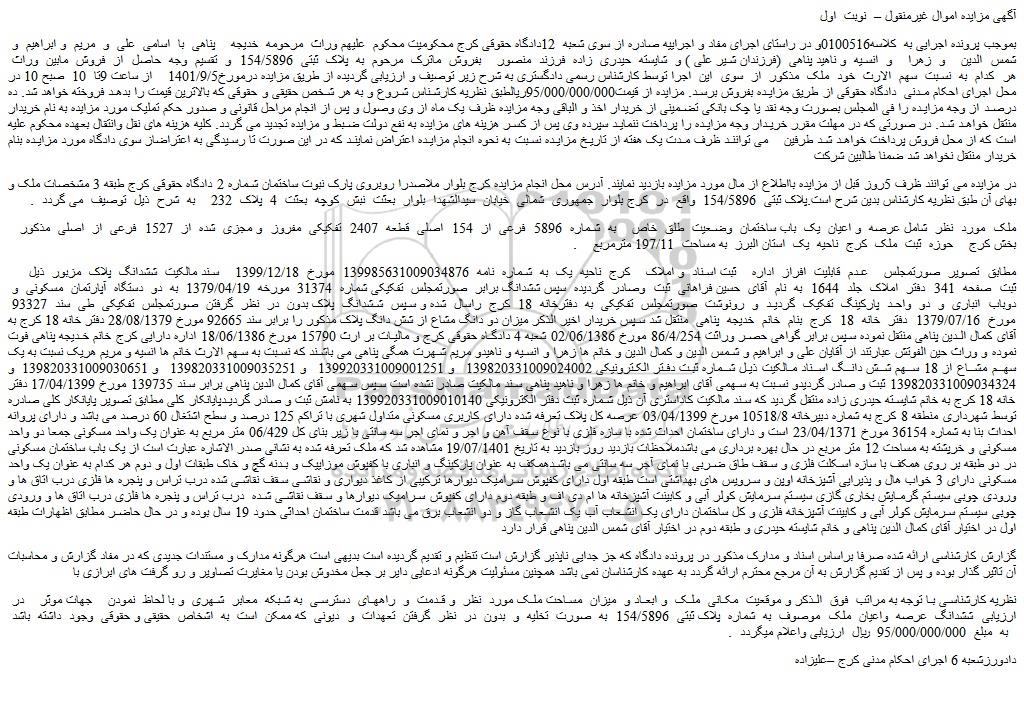 آگهی مزایده اموال غیرمنقول – نوبت اول
بموجب پرونده اجرایی به کلاسه0100516و در راستای اجرای مفاد و اجراییه صادره از سوی شعبه 12دادگاه حقوقی کرج محکومیت محکوم علیهم وراث مرحومه خدیجه پناهی با اسامی علی و مریم و ابراهیم و
شمس الدین و زهرا و انسیه و ناهید پناهی (فرزندان شیر علی ) و شایسته حیدری زاده فرزند منصور بفروش ماترک مرحوم به پلاک ثبتی 154/5896 و تقسیم وجه حاصل از فروش مابین وراث
هر کدام به نسبت سهم الارث خود ملک مذکور از سوی این اجرا توسط کارشناس رسمی دادگستری به شرح زیر توصیف و ارزیابی گردیده از طریق مزایده درمورخ1401/9/5 از ساعت 9تا 10 صبح 10 در
محل اجرای احکام مدنی دادگاه حقوقی از طریق مزایده بفروش برسد. مزایده از قیمت95/000/000/000ریالطبق نظریه کارشناس شروع و به هر شخص حقیقی و حقوقی که بالاترین قیمت را بدهد فروخته خواهد شد. ده
درصد از وجه مزایده را فی المجلس بصورت وجه نقد یا چک بانکی تضمینی از خریدار اخذ و الباقی وجه مزایده ظرف یک ماه از وی وصول و پس از انجام مراحل قانونی و صدور حکم تملیک مورد مزایده به نام خریدار
منتقل خواهد شد. در صورتی که در مهلت مقرر خریدار وجه مزایده را پرداخت ننماید سپرده وی پس از کسر هزینه های مزایده به نفع دولت ضبط و مزایده تجدید می گردد. کلیه هزینه های نقل وانتقال بعهده محکوم علیه
است که از محل فروش پرداخت خواهد شد طرفین می توانند ظرف مدت یک هفته از تاریخ مزایده نسبت به نحوه انجام مزایده اعتراض نمایند که در این صورت تا رسیدگی به اعتراضاز سوی دادگاه مورد مزایده بنام
خریدار منتقل نخواهد شد ضمنا طالبین شرکت
در مزایده می توانند ظرف 5روز قبل از مزایده بااطلاع از مال مورد مزایده بازدید نمایند. آدرس محل انجام مزایده کرج بلوار ملاصدرا روبروی پارک نبوت ساختمان شماره 2 دادگاه حقوقی کرج طبقه 3 مشخصات ملک و
بهای آن طبق نظریه کارشناس بدین شرح است.پلاک ثبتی 154/5896 واقع در کرج بلوار جمهوری شمالی خیابان سیدالشهدا بلوار بعثت نبش کوچه بعثت 4 پلاک 232 به شرح ذیل توصیف می گردد .
ملک مورد نظر شامل عرصه و اعیان یک باب ساختمان وضعیت طلق خاص به شماره 5896 فرعی از 154 اصلی قطعه 2407 تفکیکی مفروز و مجزی شده از 1527 فرعی از اصلی مذکور
بخش کرج حوزه ثبت ملک کرج ناحیه یک استان البرز به مساحت 197/11 مترمربع .
مطابق تصویر صورتمجلس عدم قابلیت افراز اداره ثبت اسناد و املاک کرج ناحیه یک به شماره نامه 139985631009034876 مورخ 1399/12/18 سند مالکیت ششدانگ پلاک مزبور ذیل
ثبت صفحه 341 دفتر املاک جلد 1644 به نام آقای حسین فراهانی ثبت وصادر گردیده سپس ششدانگ برابر صورتمجلس تفکیکی شماره 31374 مورخه 1379/04/19 به دو دستگاه آپارتمان مسکونی و
دوباب انباری و دو واحد پارکینگ تفکیک گردید و رونوشت صورتمجلس تفکیکی به دفترخانه 18 کرج راسال شده و سپس ششدانگ پلاک بدون در نظر گرفتن صورتمجلس تفکیکی طی سند 93327
مورخ 1379/07/16 دفتر خانه 18 کرج بنام خانم خدیجه پناهی منتقل شد سپس خریدار اخیر الذکر میزان دو دانگ مشاع از شش دانگ پلاک مذکور را برابر سند 92665 مورخ 28/08/1379 دفتر خانه 18 کرج به
آقای کمال الدین پناهی منتقل نموده سپس برابر گواهی حصر وراثت 86/4/254 مورخ 02/06/1386 شعبه 4 دادگاه حقوقی کرج و مالیات بر ارث 15790 مورخ 18/06/1386 اداره دارایی کرج خانم خدیجه پناهی فوت
نموده و وراث حین الفوتش عبارتند از آقایان علی و ابراهیم و شمس الدین و کمال الدین و خانم ها زهرا و انسیه و ناهیدو مریم شهرت همگی پناهی می باشند که نسبت به سهم الارث خانم ها انسیه و مریم هریک نسبت به یک
سهم مشاع از 18 سهم شش دانگ اسناد مالکیت ذیل شماره ثبت دفتر الکترونیکی 139820331009024002 و 139920331009001251 و 139820331009035251 و 139820331009030651 و
139820331009034324 ثبت و صادر گردیدو نسبت به سهمی آقای ابراهیم و خانم ها زهرا و ناهید پناهی سند مالکیت صادر نشده است سپس سهمی آقای کمال الدین پناهی برابر سند 139735 مورخ 17/04/1399 دفتر
خانه 18 کرج به خانم شایسته حیدری زاده منتقل گردید که سند مالکیت کاداستری آن ذیل شماره ثبت دفتر الکترونیکی 139920331009010140 به نامش ثبت و صادر گردیدپایانکار کلی مطابق تصویر پایانکار کلی صادره
توسط شهرداری منطقه 8 کرج به شماره دبیرخانه 10518/8 مورخ 03/04/1399 عرصه کل پلاک تعرفه شده دارای کاربری مسکونی متداول شهری با تراکم 125 درصد و سطح اشتغال 60 درصد می باشد و دارای پروانه
احداث بنا به شماره 36154 مورخ 23/04/1371 است و دارای ساختمان احداث شده با سازه فلزی با نوع سقف آهن و آجر و نمای آجر سه سانتی با زیر بنای کل 06/429 متر مربع به عنوان یک واحد مسکونی جمعا دو واحد
مسکونی و خرپشته به مساحت 12 متر مربع در حال بهره برداری می باشدملاحظات بازدید روز بازدید به تاریخ 19/07/1401 مشاهده شد که ملک تعرفه شده به نشانی صدر الاشاره عبارت است از یک باب ساختمان مسکونی
در دو طبقه بر روی همکف با سازه اسکلت فلزی و سقف طاق ضربی با نمای آجر سه سانتی می باشد همکف به عنوان پارکینگ و انباری با کفپوش موزاییک و بدنه گچ و خاک طبقات اول و دوم هر کدام به عنوان یک واحد
مسکونی دارای 3 خواب هال و پذیرایی آشپزخانه اوپن و سرویس های بهداشتی است طبقه اول دارای کفپوش سرامیک دیوارها ترکیبی از کاغذ دیواری و نقاشی سقف نقاشی شده درب تراس و پنجره ها فلزی درب اتاق ها و
ورودی چوبی سیستم گرمایش بخاری گازی سیستم سرمایش کولر آبی و کابینت آشپزخانه ها ام دی اف و طبقه دوم دارای کفپوش سرامیک دیوارها و سقف نقاشی شده درب تراس و پنجره ها فلزی درب اتاق ها و ورودی
چوبی سیستم سرمایش کولر آبی و کابینت آشپزخانه فلزی و کل ساختمان دارای یک انشعاب آب یک انشعاب گاز و دو انشعاب برق می باشد قدمت ساختمان احداثی حدود 19 سال بوده و در حال حاضر مطابق اظهارات طبقه
اول در اختیار آقای کمال الدین پناهی و خانم شایسته حیدری و طبقه دوم در اختیار آقای شمس الدین پناهی قرار دارد
گزارش کارشناسی ارائه شده صرفا براساس اسناد و مدارک مذکور در پرونده دادگاه که جز جدایی ناپذیر گزارش است تنظیم و تقدیم گردیده است بدیهی است هرگونه مدارک و مستندات جدیدی که در مفاد گزارش و محاسبات
آن تاثیر گذار بوده و پس از تقدیم گزارش به آن مرجع محترم ارائه گردد به عهده کارشناسان نمی باشد همچنین مسئولیت هرگونه ادعایی دایر بر جعل مخدوش بودن یا مغایرت تصاویر و رو گرفت های ابرازی با
نظریه کارشناسی با توجه به مراتب فوق الذکر و موقعیت مکانی ملک و ابعاد و میزان مساحت ملک مورد نظر و قدمت و راههای دسترسی به شبکه معابر شهری و با لحاظ نمودن جهات موثر در
ارزیابی ششدانگ عرصه واعیان ملک موصوف به شماره پلاک ثبتی 154/5896 به صورت تخلیه و بدون در نظر گرفتن تعهدات و دیونی که ممکن است به اشخاص حقیقی و حقوقی وجود داشته باشد
به مبلغ 95/000/000/000 ریال ارزیابی واعلام میگردد .
دادورزشعبه 6 اجرای احکام مدنی کرج –علیزاده